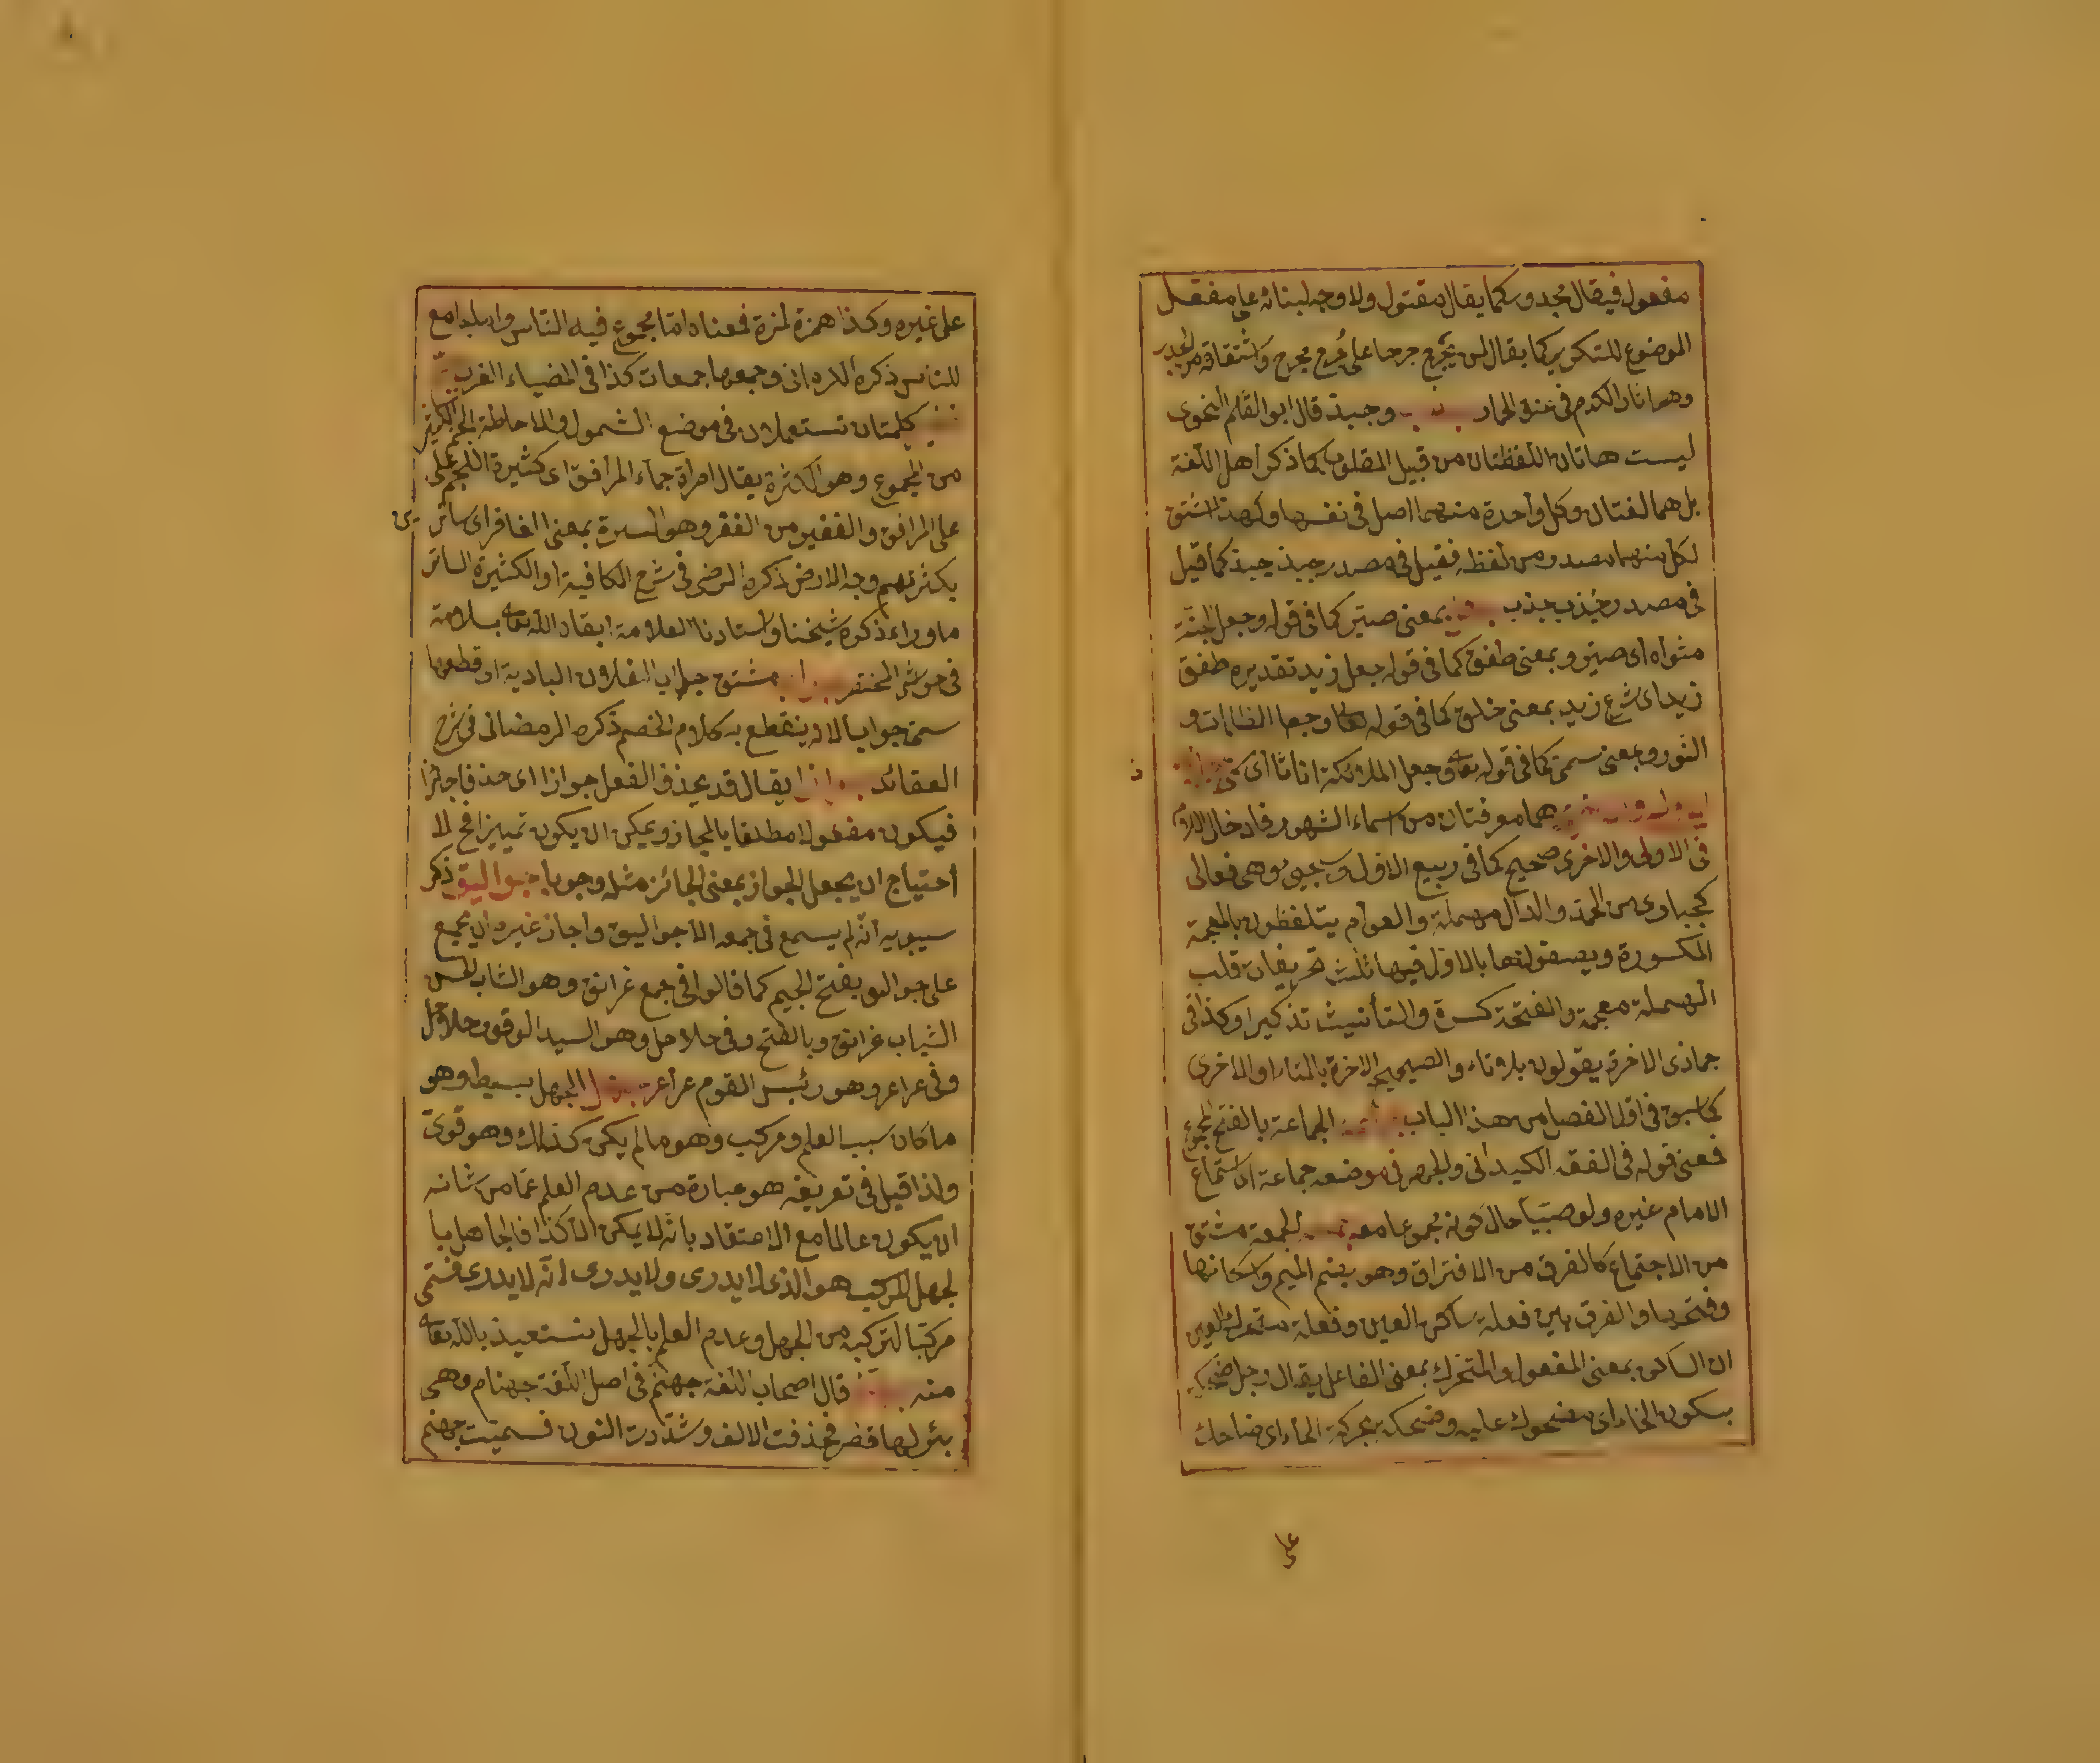 مفعول فيقال مجدوس كما يقال مقتول ولا وجه لبنائه على مفعل
الموضوع للتكرير كما يقال لمن يجرح جرحا على جرح مجرح واشتقاقه من الجدر
وهو اثار الكدم في عنق الحمار وجبذ قال ابو القسم النحوى
ليست هاتان اللفظتان من قبيل المقلوب كما ذكر اهل اللغة
بل هما لغتان وكل واحدة منهما اصل في نفسها ولهذا اشتق
لكل منهما مصدر من لفظه فقيل في مصدر جبذ جبذ كما قيل
في مصدر جذب جذب بمعنى صير كما في قوله وجعل الجنة
مثواه اى صير وبمعنى طفق كما في قوله جعل زيد تقديره طفق
زيد اى شرع زيد بمعنى خلق كما في قوله تعا وجعل الظلمات و
النور وبمعنى سمى كما في قوله تعا وجعل الملائكة اناثا اى
هما معرفتان من اسماء الشهور فادخال اللام
في الاولى والاخرى صحيح كما في ربيع الاول وهى فعالى
كحبارى من الجمد والدال مهملة والعوام يتلفظون بالمعجمة
المكسورة ويصفونها بالاول ففيها ثلث تحريفات قلب
المهملة معجمة والفتحة كسرة والتأنيث تذكيرا وكذا في
جمادى الاخرة يقولون بلا تاء والصحيح الاخرة بالتاء او الاخرى
كما سبق في اول الفصل من هذا الباب الجماعة بالفتح المجموع
فمعنى قوله في الفقه الكيدانى والجهر في موضعه جماعة اى استماع
الامام غيره ولو صبيا حال كونه مجموعا معه الجمعة مشتق
من الاجتماع كالفرق من الافتراق وهو بضم الميم واسكانها
وفتحها والفرق بين فعلة ساكن العين وفعلة متحرك العين
ان الساكن بمعنى المفعول والمتحرك بمعنى الفاعل يقال رجل ضحكة
بسكون الحاء اى مضحوك عليه وضحكة بحركة الحاء اى ضاحك
على
على غيره وكذا همزة لمزة فمعناه اما مجموع فيه الناس واما جامع
للناس ذكره الكرمانى وجمعها جمعات كذا في الضياء
كلمتان تستعملان في موضع الشمول والاحاطة الجم الكثير
من الجموم وهو الكثرة يقال امرأة جماء المرافق اى كثيرة اللحم على
على المرافق والغفير من الغفر وهو الستر بمعنى الغافر اى ساتر
بكثرتهم وجه الارض ذكره الرضى في شرح الكافية او الكثيرة الساتر
ما وراءه ذكره شيخنا واستادنا العلامة ابقاه الله تعا بسلامة
في حواشى المختصر مشتق جاب الفلان البادية اى قطعها
سمى جوابا لانه ينقطع به كلام الخصم ذكره الرمضانى في شرح
العقائد يقال قد يحذف الفعل جوازا اى حذفا جائزا
فيكون مفعولا مطلقا بالمجاز ويمكن ان يكون تمييزا فح لا
احتياج ان يجعل الجواز بمعنى الجائز مثله وجوبا جواليق ذكر
سيبويه انه لم يسمع في جمعه الا جواليق واجاز غيره ان يجمع
على جوالق بفتح الجيم كما قالوا في جمع غرانق وهو الشاب الحسن
الشباب غرانق وبالفتح وفي حلاحل وهو السيد الوقور حلاحل
وفي عراعر وهو رئيس القوم عراعر الجهل بسيط وهو
ما كان سبب العلم ومركب وهو ما لم يكن كذلك وهو قوى
ولذا قيل في تعريفه هو عبارة من عدم العلم عما من شانه
ان يكون عالما مع الاعتقاد بانه لا يمكن الا كذا فالجاهل با
لجهل المركب هو الذى لا يدرى ولا يدرى انه لا يدرى فسمى
مركبا لتركبه من الجهل وعدم العلم بالجهل نستعيذ بالله تعا
منه قال اصحاب اللغة جهنم في اصل اللغة جهنام وهى
بئر لها قعر فحذفت الالف وشددت النون فسميت جهنم